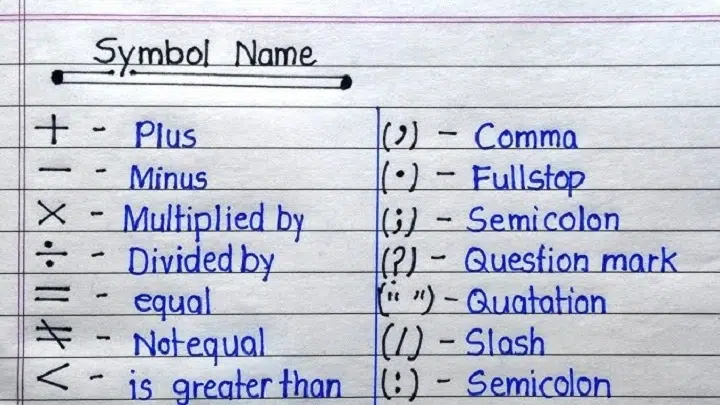 Symbol Name
+ - Plus
− - Minus
× - Multiplied by
÷ - Divided by
= - equal
≠ - Notequal
< - is greater than
(,) - Comma
(.) - Fullstop
(;) - Semicolon
(?) - Question mark
(“ ”) - Quatation
(/) - Slash
(:) - Semicolon